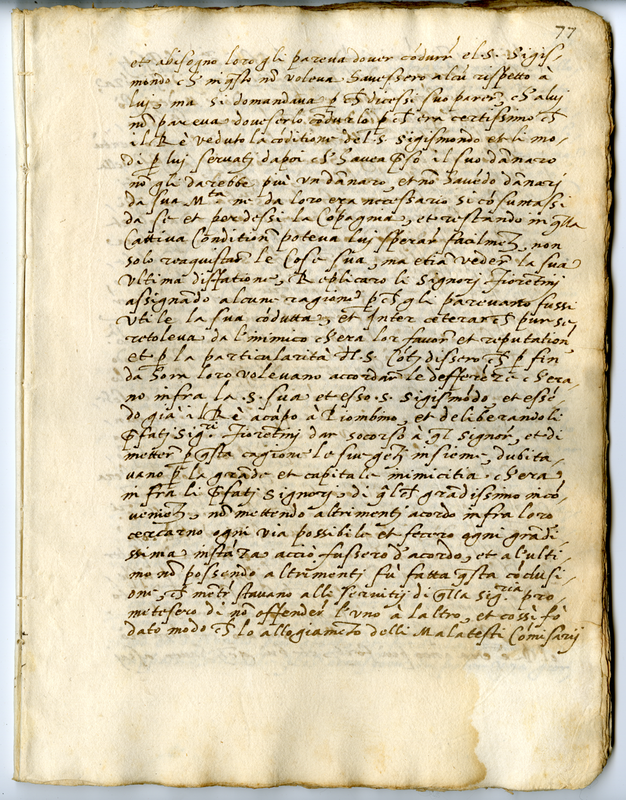 77
et abisogno loro gli pareva dover códurr el S. Sigis-
mondo ch in qsto nō voleva havessero alcū rispetto à
luj, ma si domandava p ch dicessi suo parer, ch a luj
nō pareva doverselo códurlo p ch era certissimo ch
il Rè veduto la coditione del S. Sigismondo et li mo-
di p lui servatj dapoi ch havea pso il suo dānaro
nō gli darebbe più un dānaro, et nō havēdo dānarj
da sua M.ta ne da loro era necessario si cósumassi
da se et perdessi la Copagnia, et restando in qlla
Cattiva Condition poteva luj sperar facilmēt, non
solo reaquistar le Cose sua, ma etia veder la sua
ultima disfatione, Replicaro li Signorj Fioretinj
assignādo alcune ragione p ch gli parevano fussi
utile la sua códutta, et inter cetera ch pur se
retoleva da l'inimico ch era lor favor et reputation
et p la particularita dl S. Cōt, dissero ch p fin
da hora loro volevano accordar le defferēze ch era-
no infra la S. sua et esso S. Sigismōdo, et essē-
do già il Rè acāpo à Piombino, et deliberandoli
pfatj Sig.ri Fioretinj dar socorso à ql Signor, et di
metter p qsta cagione le sue gēti insieme, dubita-
vano p la grāde et capitale inimicitia ch era
infra li pfatj Signorj, di qlch grādissimo incō-
veniēt, nō mettendo altrimentj acordo infra loro
cercarno ogni via possibile et fecero ogni grādi-
ssima instāza acciò fussero d'acordo, et a l'ulti-
mo nō possendo altrimentj fù fatta qsta cóclusi-
one, ch mētr stavano alli servitij di qlla Sig.ria pro-
metesero di nō offender l'uno à laltro, et cossi fò
dato modo ch lo allogiamēto delli Malatesti Comisarij